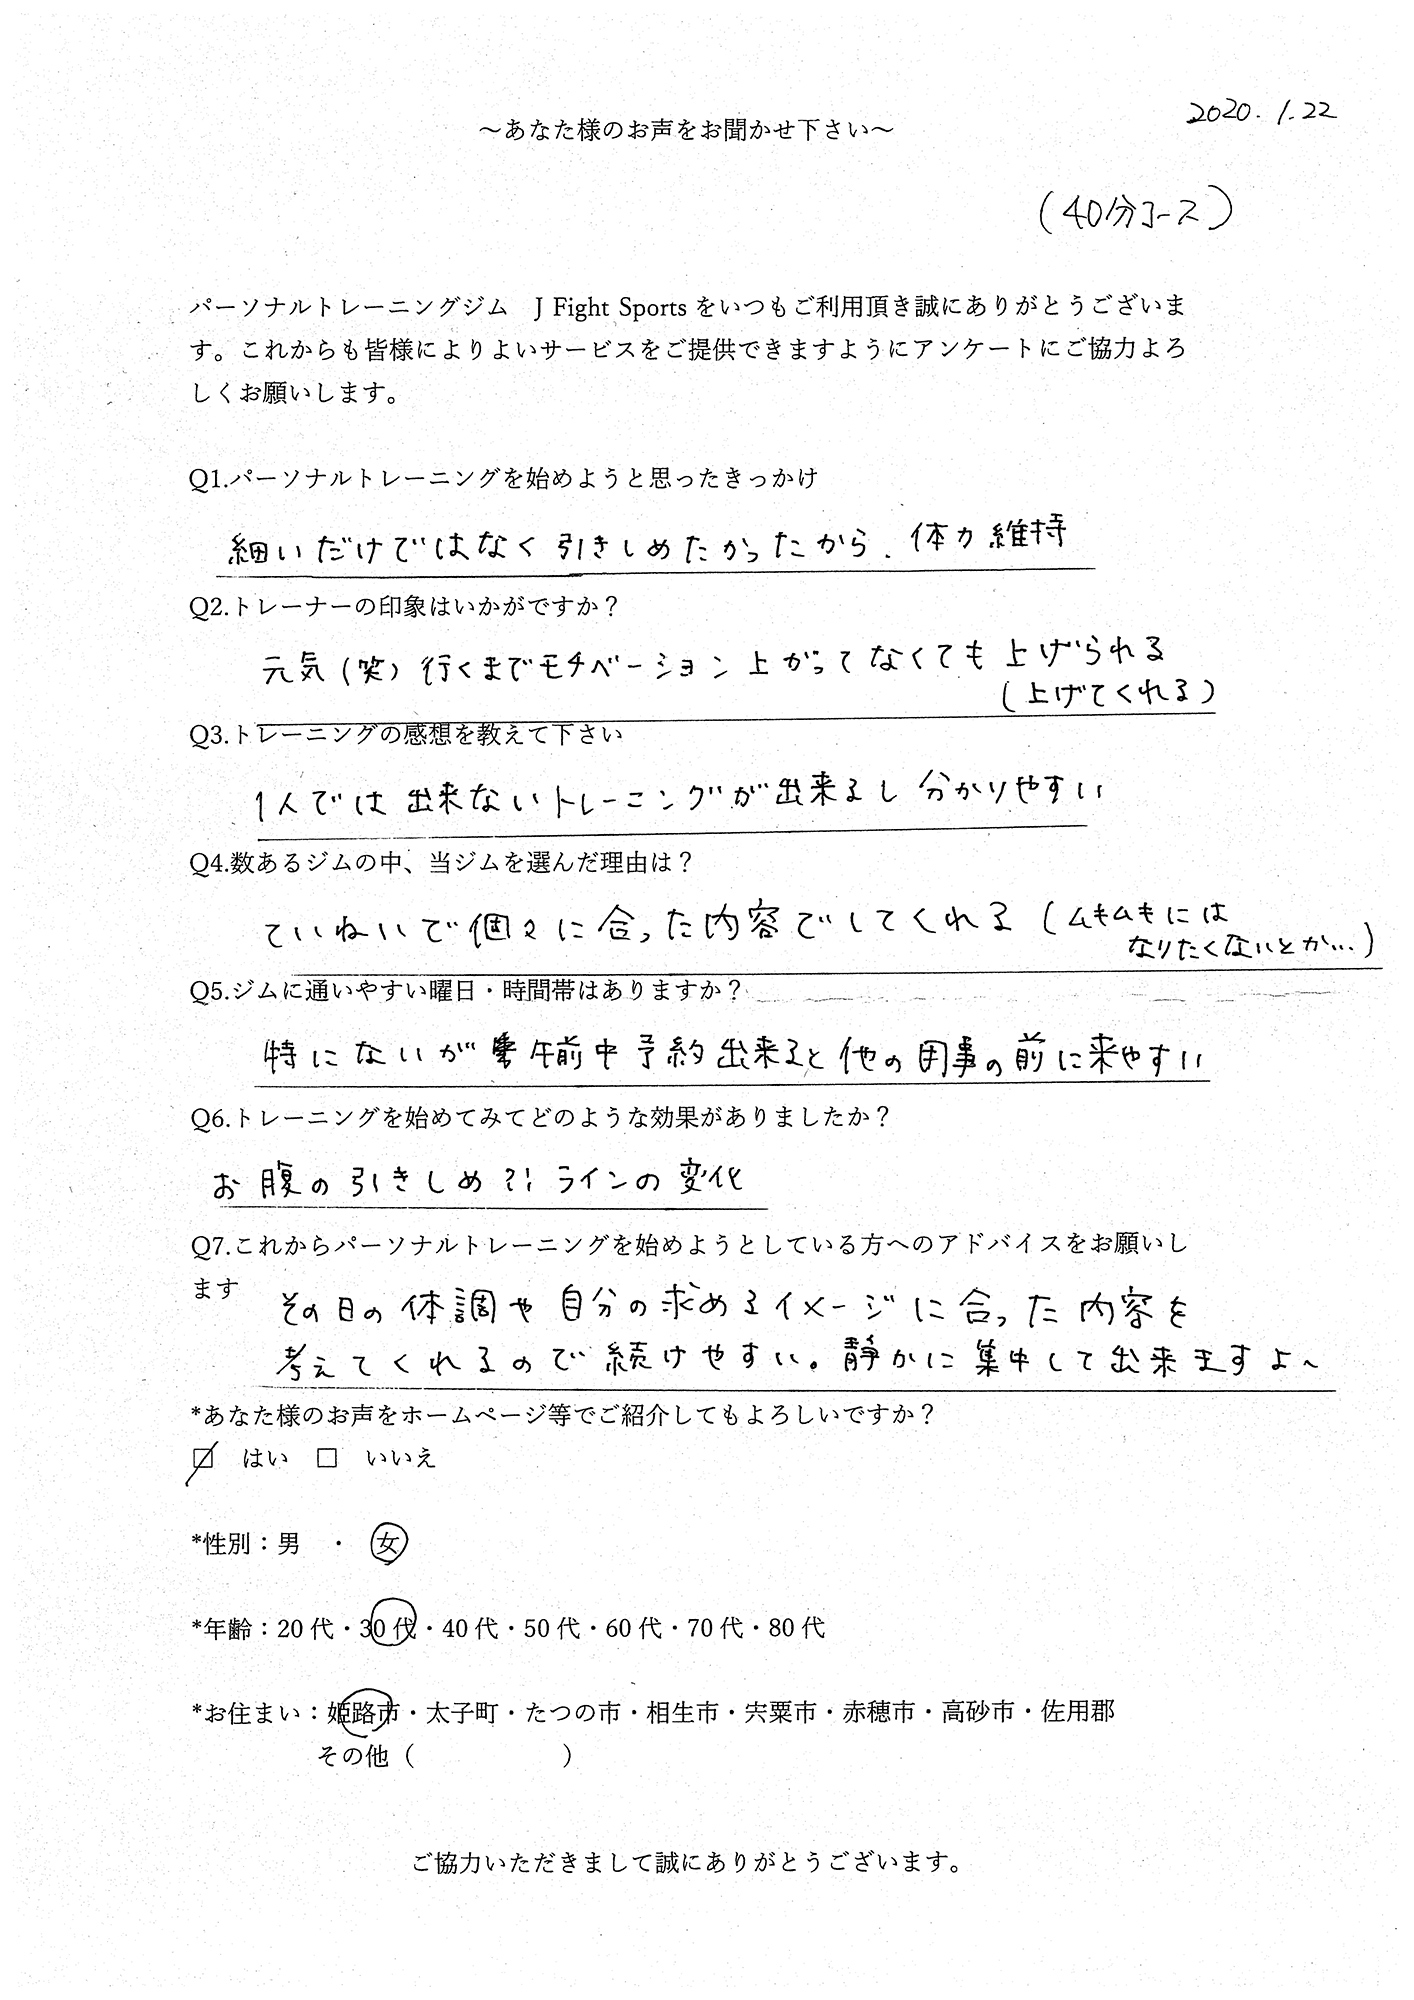 2020. 1. 22
～あなた様のお声をお聞かせ下さい～
(40分コース)
パーソナルトレーニングジム　J Fight Sports をいつもご利用頂き誠にありがとうございま
す。これからも皆様によりよいサービスをご提供できますようにアンケートにご協力よろ
しくお願いします。
Q1.パーソナルトレーニングを始めようと思ったきっかけ
細いだけではなく引きしめたかったから、体力維持
Q2.トレーナーの印象はいかがですか？
元気(笑) 行くまでモチベーション上がってなくても上げられる
(上げてくれる)
Q3.トレーニングの感想を教えて下さい
1人では出来ないトレーニングが出来るし分かりやすい
Q4.数あるジムの中、当ジムを選んだ理由は？
ていねいで個々に合った内容でしてくれる (ムキムキには
なりたくないとか…)
Q5.ジムに通いやすい曜日・時間帯はありますか？
特にないが 午前中予約出来ると他の用事の前に来やすい
Q6.トレーニングを始めてみてどのような効果がありましたか？
お腹の引きしめ?! ラインの変化
Q7.これからパーソナルトレーニングを始めようとしている方へのアドバイスをお願いし
ます
その日の体調や自分の求めるイメージに合った内容を
考えてくれるので続けやすい。静かに集中して出来ますよ~
*あなた様のお声をホームページ等でご紹介してもよろしいですか？
☑ はい □ いいえ
*性別：男　・　女
*年齢：20代・30代・40代・50代・60代・70代・80代
*お住まい：姫路市・太子町・たつの市・相生市・宍粟市・赤穂市・高砂市・佐用郡
その他（　　　　　　）
ご協力いただきまして誠にありがとうございます。